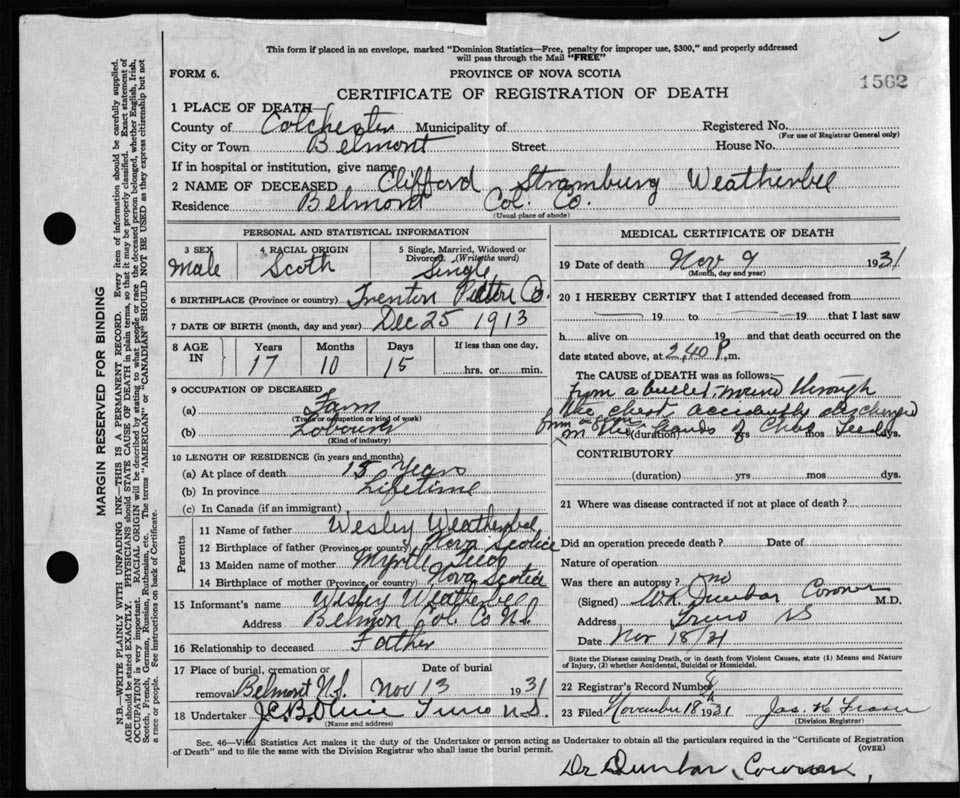 This form if placed in an envelope, marked "Dominion Statistics—Free, penalty for improper use, $300," and properly addressed
will pass through the Mail "FREE"
FORM 6.
PROVINCE OF NOVA SCOTIA
1562
CERTIFICATE OF REGISTRATION OF DEATH
MARGIN RESERVED FOR BINDING
N.B.—WRITE PLAINLY WITH UNFADING INK—THIS IS A PERMANENT RECORD. Every item of information should be carefully supplied.
AGE should be stated EXACTLY. PHYSICIANS should STATE CAUSE OF DEATH in plain terms, so that it may be properly classified. Exact statement of
OCCUPATION is very important. RACIAL ORIGIN will be described by stating to what people or race the deceased person belonged, whether English, Irish,
Scotch, French, German, Russian, Ruthenian, etc. The terms "AMERICAN" or "CANADIAN" SHOULD NOT BE USED as they express citizenship but not
a race or people. See instructions on back of Certificate.
1 PLACE OF DEATH—
County of Colchester Municipality of Registered No.
(For use of Registrar General only)
City or Town Belmont Street House No.
If in hospital or institution, give name
2 NAME OF DECEASED Clifford Stramburg Weatherbee
Residence Belmont Col. Co.
(Usual place of abode)
PERSONAL AND STATISTICAL INFORMATION
3 SEX 4 RACIAL ORIGIN 5 Single, Married, Widowed or
Divorced. (Write the word)
Male Scoth Single
6 BIRTHPLACE (Province or country) Trenton Pictou Co.
7 DATE OF BIRTH (month, day and year) Dec 25 1913
8 AGE IN Years Months Days If less than one day,
17 10 15 hrs. or min.
9 OCCUPATION OF DECEASED
(a) Farm
(Trade, occupation or kind of work)
(b) Labourer
(Kind of industry)
10 LENGTH OF RESIDENCE (in years and months)
(a) At place of death 15 Years
(b) In province Lifetime
(c) In Canada (if an immigrant)
Parents
11 Name of father Wesley Weatherbee
12 Birthplace of father (Province or country) Nova Scotia
13 Maiden name of mother Myrtle
14 Birthplace of mother (Province or country) Nova Scotia
15 Informant's name Wesley Weatherbee
Address Belmon Col. Co N.S.
16 Relationship to deceased Father
17 Place of burial, cremation or Date of burial
removal Belmont N.S. Nov 13 1931
18 Undertaker J.C.B. Olive Truro N.S.
(Name and address)
MEDICAL CERTIFICATE OF DEATH
19 Date of death Nov 9 1931
(Month, day and year)
20 I HEREBY CERTIFY that I attended deceased from
19 to 19 that I last saw
h alive on 19 and that death occurred on the
date stated above, at 2.40 P. m.
The CAUSE of DEATH was as follows:—
from a bullet wound through
the chest accidently discharged
from a
in the hands of Chas
(duration) yrs mos dys.
CONTRIBUTORY
(duration) yrs mos dys.
21 Where was disease contracted if not at place of death?
Did an operation precede death? Date of
Nature of operation
Was there an autopsy? no
(Signed) W.R. Dunbar Coroner M.D.
Address Truro NS
Date Nov 18/31
State the Disease causing Death, or in death from Violent Causes, state (1) Means and Nature
of Injury, (2) whether Accidental, Suicidal or Homicidal.
22 Registrar's Record Number
23 Filed November 18 1931 Jas. K Fraser
(Division Registrar)
Sec. 46—Vital Statistics Act makes it the duty of the Undertaker or person acting as Undertaker to obtain all the particulars required in the "Certificate of Registration
of Death" and to file the same with the Division Registrar who shall issue the burial permit.
(OVER)
Dr Dunbar, Coroner,